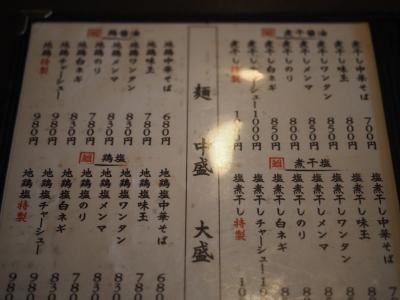 煮干醤油
煮干し中華そば 700円
煮干し味玉 800円
煮干しワンタン 850円
煮干しメンマ 850円
煮干しのり 800円
煮干し白ネギ 850円
煮干しチャーシュー 1000円
煮干し特製
煮干塩
塩煮干し中華そば
塩煮干し味玉
塩煮干しワンタン
塩煮干しメンマ
塩煮干しのり
塩煮干し白ネギ
塩煮干しチャーシュー
塩煮干し特製
麺 中盛 大盛
鶏醤油
地鶏中華そば 680円
地鶏味玉 780円
地鶏ワンタン 830円
地鶏メンマ 830円
地鶏のり 780円
地鶏白ネギ 830円
地鶏チャーシュー 980円
地鶏特製 980円
鶏塩
地鶏塩中華そば
地鶏塩味玉
地鶏塩ワンタン
地鶏塩メンマ
地鶏塩のり
地鶏塩白ネギ
地鶏塩チャーシュー
地鶏塩特製